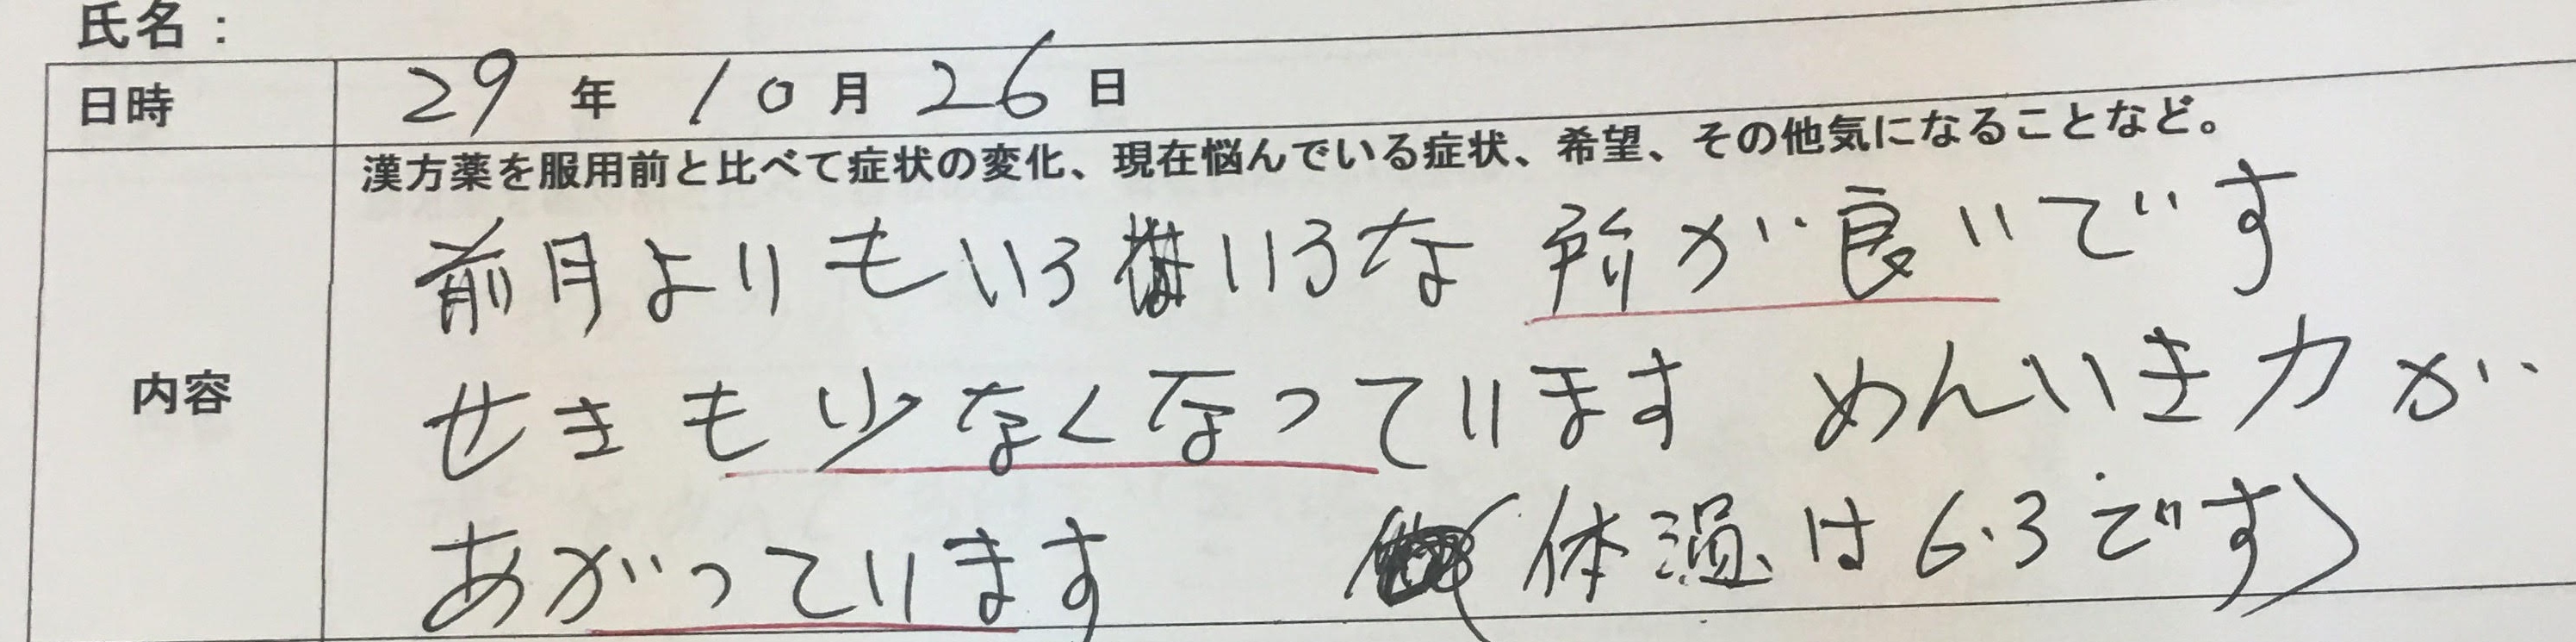 氏名：
日時 29 年 10 月 26 日
漢方薬を服用前と比べて症状の変化、現在悩んでいる症状、希望、その他気になることなど。
内容
前月よりもいろいろな 所が良いです
せきも少なくなっています めんいき力が
あがっています (体温は6.3です)